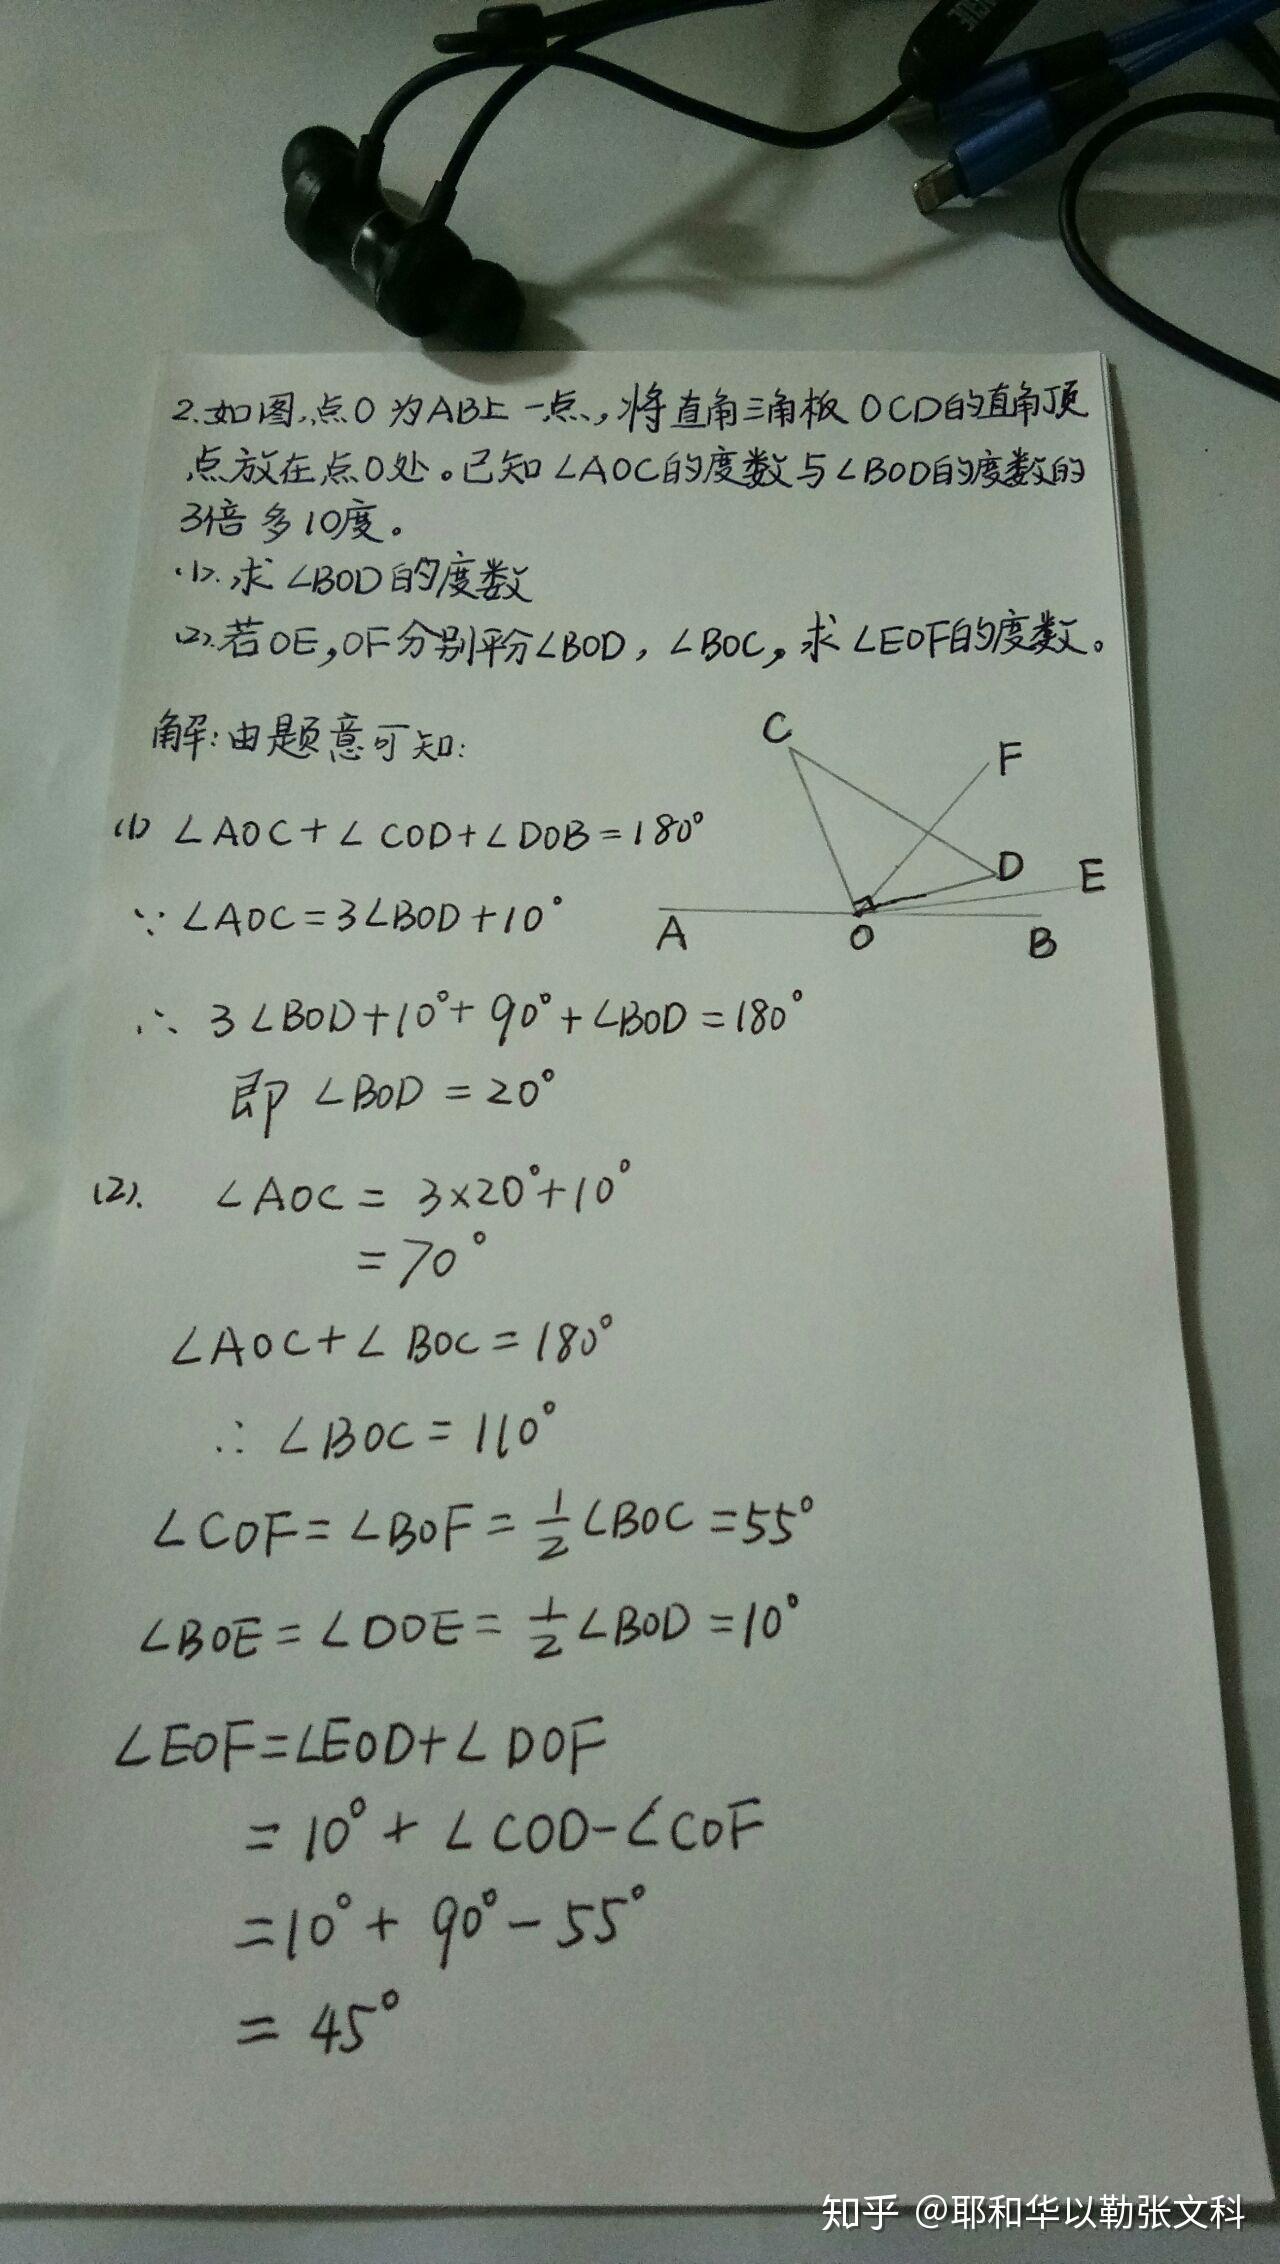 2.如图,点O为AB上一点,将直角三角板OCD的直角顶
点放在点O处。已知∠AOC的度数与∠BOD的度数的
3倍多10度。
(1).求∠BOD的度数
(2).若OE,OF分别平分∠BOD,∠BOC,求∠EOF的度数。
解:由题意可知:
C
F
D
E
A
O
B
(1) ∠AOC+∠COD+∠DOB=180°
∵∠AOC=3∠BOD+10°
∴ 3∠BOD+10°+90°+∠BOD=180°
即∠BOD=20°
(2). ∠AOC=3×20°+10°
=70°
∠AOC+∠BOC=180°
∴∠BOC=110°
∠COF=∠BOF=1/2∠BOC=55°
∠BOE=∠DOE=1/2∠BOD=10°
∠EOF=∠EOD+∠DOF
=10°+∠COD-∠COF
=10°+90°-55°
=45°
知乎 @耶和华以勒张文科